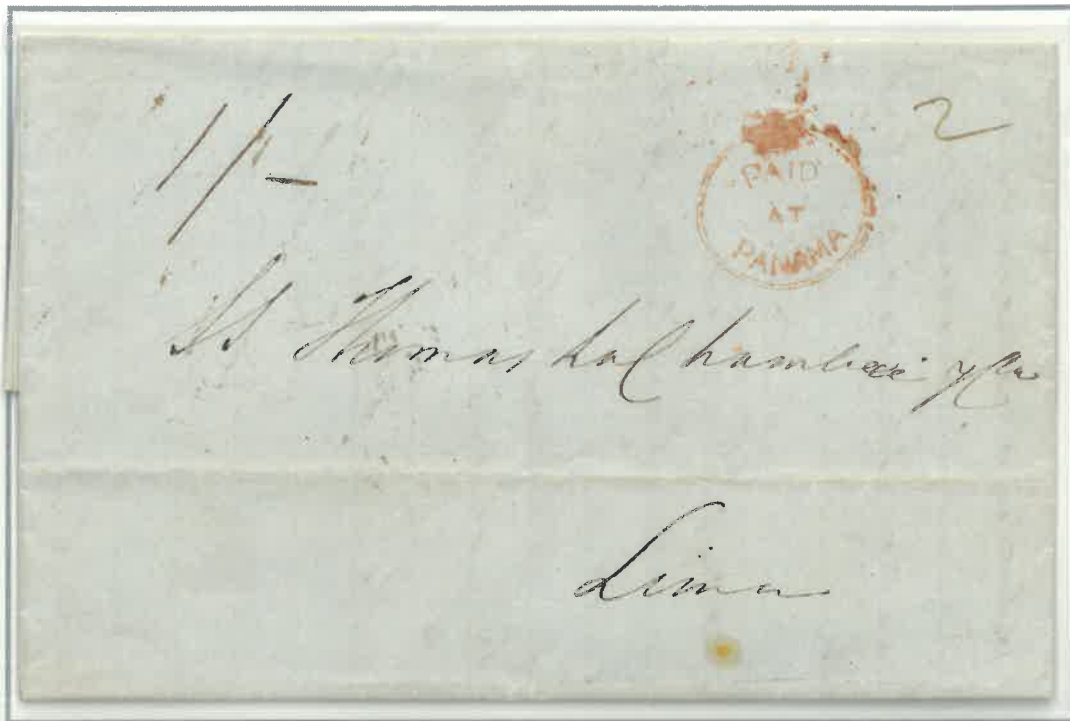 1/-
2
PAID
AT
PANAMA
SS Thomas Lachambre y Ca
Lima